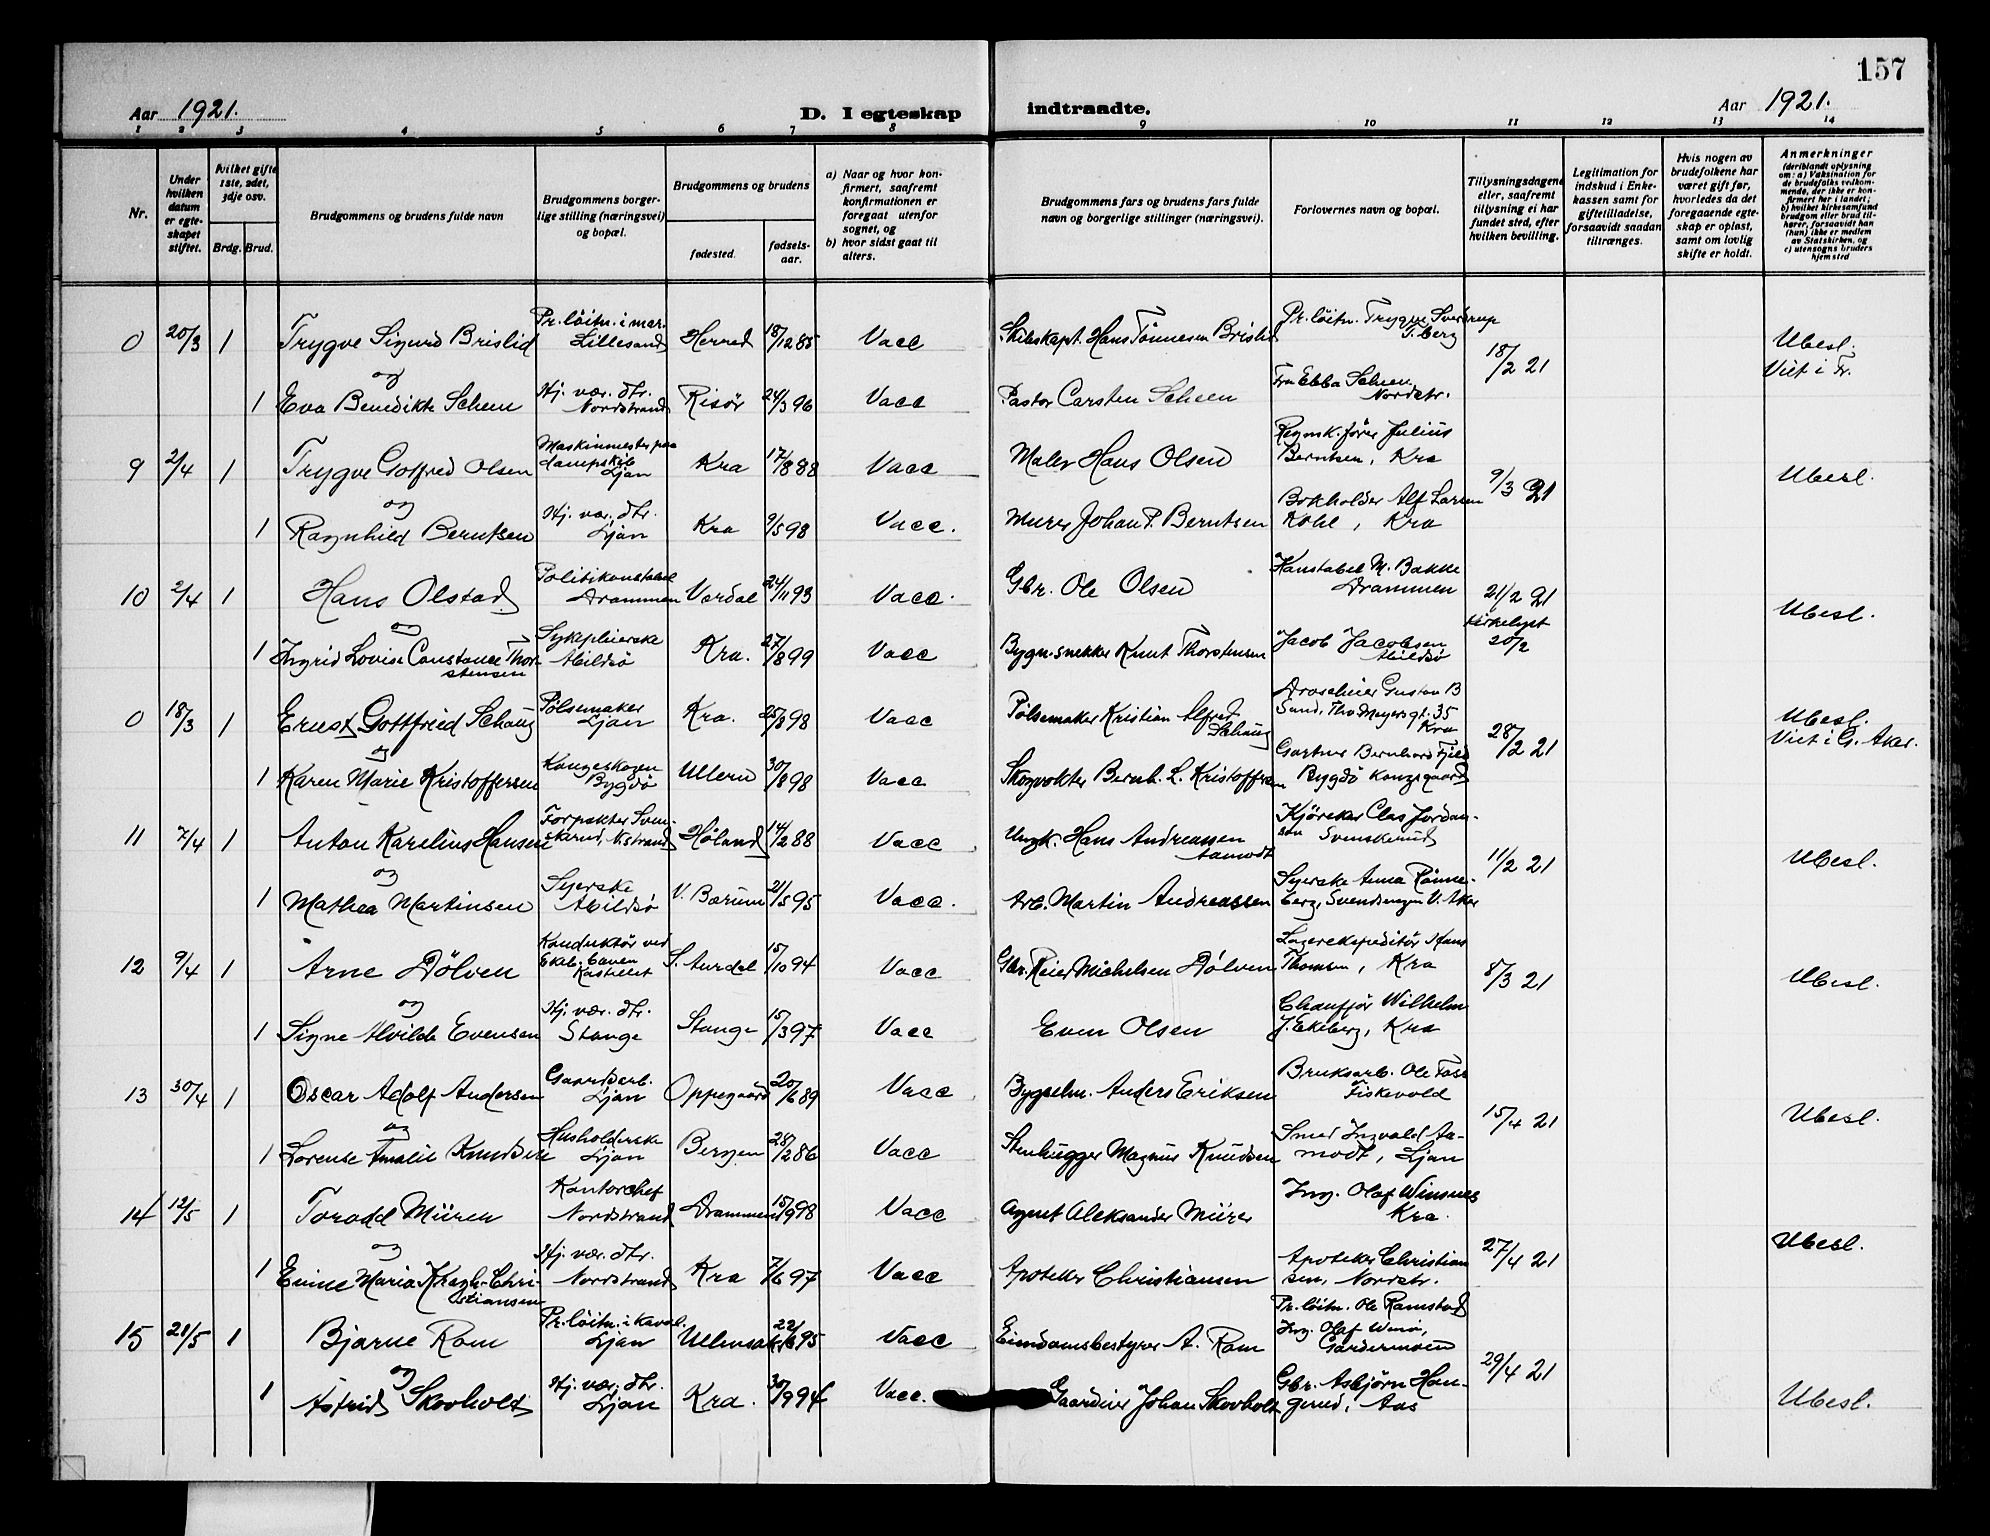 157
Aar 1921. D. I egteskap indtraadte. Aar 1921.
1 2 3 4 5 6 7 8 9 10 11 12 13 14
Nr.
Under hvilken datum er egteskapet stiftet.
Hvilket gifte 1ste, 2det, 3dje osv.
Brdg. Brud.
Brudgommens og brudens fulde navn
Brudgommens borgerlige stilling (næringsvei) og bopæl.
Brudgommens og brudens
fødested. fødselsaar.
a) Naar og hvor konfirmert, saafremt konfirmationen er foregaat utenfor sognet, og
b) hvor sidst gaat til alters.
Brudgommens fars og brudens fars fulde navn og borgerlige stillinger (næringsvei).
Forlovernes navn og bopæl.
Tillysningsdagene eller, saafremt tillysning ei har fundet sted, efter hvilken bevilling.
Legitimation for indskud i Enkekassen samt for giftetilladelse, forsaavidt saadan tiltrænges.
Hvis nogen av brudefolkene har været gift før, hvorledes da det foregaaende egteskap er opløst, samt om lovlig skifte er holdt.
Anmerkninger
(deriblandt oplysning om: a) Vaksination for de brudefolks vedkommende, der ikke er konfirmert her i landet; b) hvilket kirkesamfund brudgom eller brud tilhører, forsaavidt han (hun) ikke er medlem av Statskirken, og c) utensogns bruders hjemsted
0 20/3 1 Trygve Sigurd Brislid Pr. löitn. i mar. Lillesand Herred 18/12 85 Vacc Skibskapt. Hans Tönnesen Brislid Pr. löitn. Trygve Sverdrup T.berg 18/2 21 Ubesl. Viet i Fr.
og
1 Eva Benedikte Scheen Hj. vær. dtr. Nordstrand Risör 24/3 96 Vacc Pastor Carsten Scheen Fru Ebba Scheen Nordstr.
9 2/4 1 Trygve Gotfred Olsen Maskinmester paa dampskib Ljan Kra 17/8 88 Vacc Maler Hans Olsen Regnsk.förer Julius Berntsen, Kra 9/3 21 Ubesl.
og
1 Ragnhild Berntsen Hj. vær. dtr. Ljan Kra 9/5 98 Vacc. Murer Johan P. Berntsen Bokholder Alf Larsen Kohl, Kra
10 2/4 1 Hans Olstad Politikonstabel Drammen Værdal 24/11 93 Vacc. Gbr. Ole Olsen Konstabel M. Bakke Drammen 21/2 21 kirkelyst 20/2 Ubesl.
og
1 Ingrid Lovise Constance Thorstensen Sykepleierske Abildsö Kra. 27/8 99 Vacc Bygn.snekker Knut Thorstensen Jacob Jacobsen Abildsö
0 18/3 1 Ernst Gottfried Schaug Pölsemaker Ljan Kra. 25/8 98 Vacc Pölsemaker Kristian Alfred Schaug Droscheier Gustav B Sand, Th. Meyersgt. 35 Kra 28/2 21 Ubesl. Viet i G. Aker.
og
1 Karen Marie Kristoffersen Kongeskogen Bygdö Ullern 30/8 98 Vacc Skogvokter Bernh. L. Kristoffersen Gartner Bernhard Fjeld Bygdö Kongsgaard
11 7/4 1 Anton Karelius Hansen Forpakter Svenskerud, N.strand Höland 14/2 88 Vacc Ungk. Hans Andreassen Aamodt Kjörekar Clas Jordansen Svenskerud 11/2 21 Ubesl.
og
1 Mathea Martinsen Syerske Abildsö V. Bærum 21/5 95 Vacc. Arb. Martin Andreassen Syerske Anna Rönneberg, Svendsengen V. Aker
12 9/4 1 Arne Dölven Konduktör ved Ekeb.banen Kastellet S. Aurdal 15/10 94 Vacc Gbr. Reier Michelsen Dölven Lagerekspeditör Hans Thomsen, Kra 8/3 21 Ubesl.
og
1 Signe Alvilde Evensen Hj. vær. dtr. Stange Stange 15/3 97 Vacc Even Olsen Chaufför Wilhelm J. Ekeberg, Kra
13 30/4 1 Oscar Adolf Andersen Gaardarb. Ljan Oppegaard 20/6 89 Vacc Bygselm. Anders Eriksen Bruksarb. Ole Foss Fiskevold 15/4 21 Ubesl.
og
1 Lorense Amalie Knudsen Husholderske Ljan Bergen 28/2 86 Vacc Stenhugger Magnus Knudsen Smed Ingvald Aamodt, Ljan
14 12/5 1 Torodd Mürer Kontorchef Nordstrand Drammen 15/9 98 Vacc Agent Aleksander Mürer Ing. Olaf Winsnes Kra. 27/4 21 Ubesl.
og
1 Emine Maria Kragh-Christiansen Hj. vær. dtr. Nordstrand Kra 7/6 97 Vacc Apoteker Christiansen Apoteker Christiansen, Nordstr.
15 21/5 1 Bjarne Rom Pr. löitn. i kaval. Ljan Ullensaker 22/6 95 Vacc Eiendomsbestyrer A. Rom Pr. löitn. Ole Ramstad Ing. Olaf Gardermoen 29/4 21
og
1 Astrid Skovholt Hj. vær. dtr. Ljan Kra. 30/9 94 Vacc. Gaardeier Johan Skovholt Gbr. Asbjörn Hangerud, Aas Ubesl.